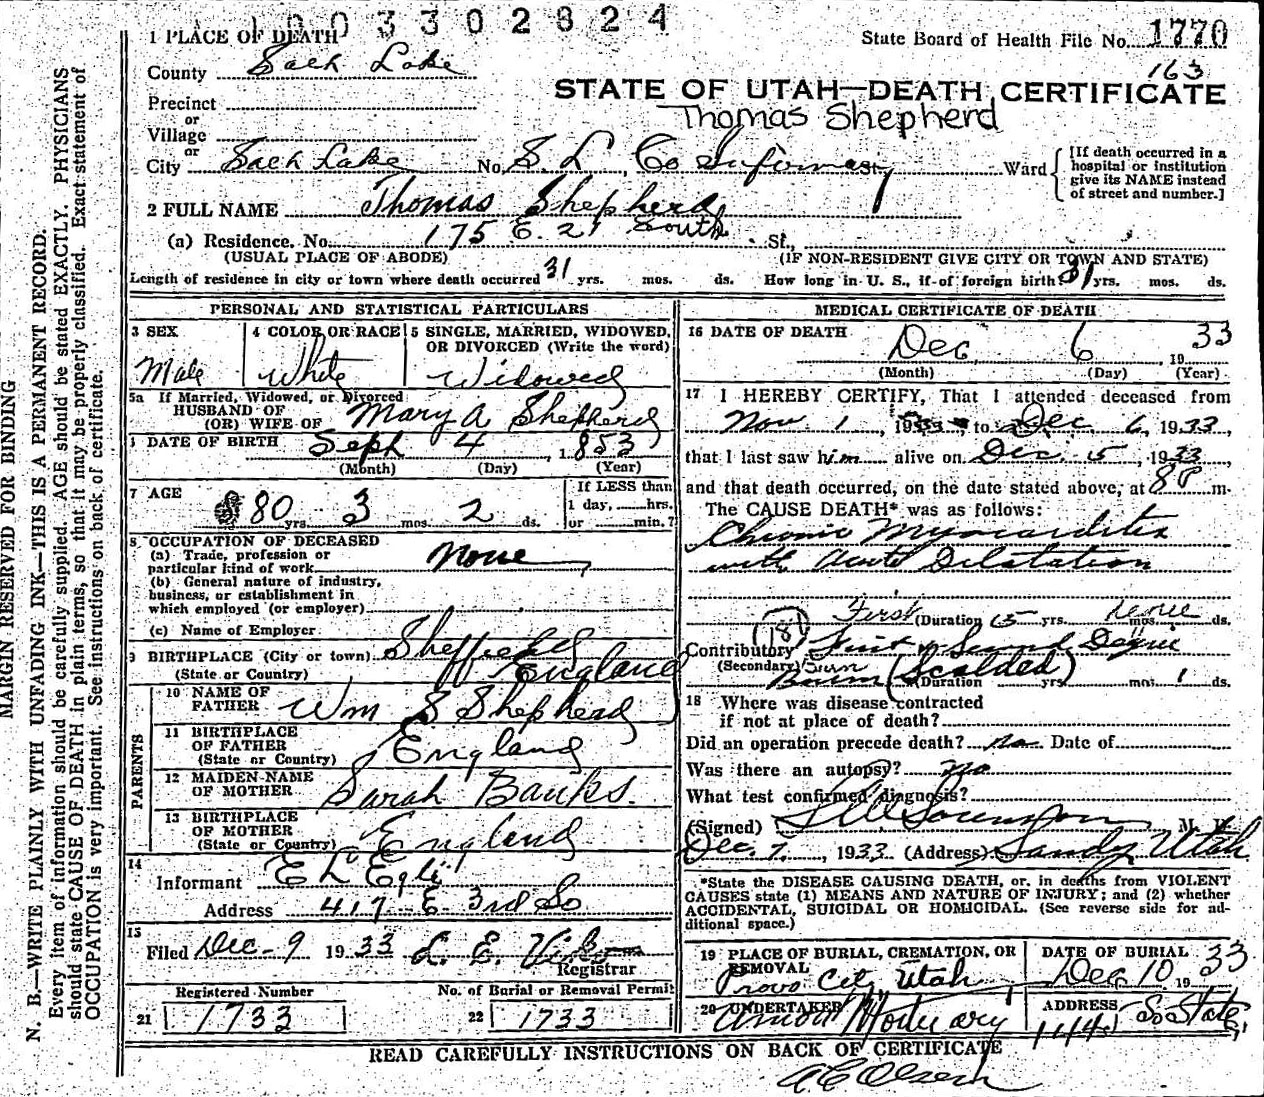 1003302824
1 PLACE OF DEATH
State Board of Health File No. 1770
163
County Salt Lake
STATE OF UTAH—DEATH CERTIFICATE
Thomas Shepherd
Precinct
or
Village
or
City Salt Lake No. S L Co Infirmary Ward
[If death occurred in a hospital or institution give its NAME instead of street and number.]
2 FULL NAME Thomas Shepherd
(a) Residence. No. 175 E. 2 South St.,
(USUAL PLACE OF ABODE) (IF NON-RESIDENT GIVE CITY OR TOWN AND STATE)
Length of residence in city or town where death occurred 31 yrs. mos. ds. How long in U. S., if of foreign birth? 31 yrs. mos. ds.
PERSONAL AND STATISTICAL PARTICULARS
3 SEX
Male
4 COLOR OR RACE
White
5 SINGLE, MARRIED, WIDOWED, OR DIVORCED (Write the word)
Widowed
5a If Married, Widowed, or Divorced
HUSBAND OF
(OR) WIFE OF Mary A Shepherd
DATE OF BIRTH Sept 4, 1853
(Month) (Day) (Year)
7 AGE
80 yrs. 3 mos. 2 ds.
If LESS than
1 day, hrs.
or min.?
8 OCCUPATION OF DECEASED
(a) Trade, profession or
particular kind of work None
(b) General nature of industry,
business, or establishment in
which employed (or employer)
(c) Name of Employer
9 BIRTHPLACE (City or town) Sheffield
(State or Country) England
PARENTS
10 NAME OF
FATHER Wm S Shepherd
11 BIRTHPLACE
OF FATHER
(State or Country) England
12 MAIDEN NAME
OF MOTHER Sarah Banks.
13 BIRTHPLACE
OF MOTHER
(State or Country) England
14
Informant E L Egli
Address 417 E 3rd So
15
Filed Dec 9 1933 L. E.
Registrar
Registered Number
21 1733
No. of Burial or Removal Permit
22 1733
MEDICAL CERTIFICATE OF DEATH
16 DATE OF DEATH
Dec 6, 1933
(Month) (Day) (Year)
17 I HEREBY CERTIFY, That I attended deceased from
Nov. 1, 1933, to Dec 6, 1933,
that I last saw him alive on Dec. 5, 1933,
and that death occurred, on the date stated above, at 8 P m.
The CAUSE DEATH* was as follows:
Chronic Myocarditis
with Acute Dilatation
First (Duration 5 yrs. mos. ds.
181
Contributory First & Second Degree
(Secondary) Burn
Burn (Scalded)
(Duration yrs. mos. 1 ds.
18 Where was disease contracted
if not at place of death?
Did an operation precede death? no Date of
Was there an autopsy? no
What test confirmed diagnosis?
(Signed) Sorenson M. D.
Dec. 7, 1933 (Address) Sandy Utah
*State the DISEASE CAUSING DEATH, or, in deaths from VIOLENT
CAUSES state (1) MEANS AND NATURE OF INJURY; and (2) whether
ACCIDENTAL, SUICIDAL OR HOMICIDAL. (See reverse side for ad-
ditional space.)
19 PLACE OF BURIAL, CREMATION, OR
REMOVAL
Provo City, Utah
DATE OF BURIAL
Dec 10 1933
20 UNDERTAKER
Mortuary
ADDRESS
So State
READ CAREFULLY INSTRUCTIONS ON BACK OF CERTIFICATE
A C Olsen
MARGIN RESERVED FOR BINDING
N. B.—WRITE PLAINLY WITH UNFADING INK—THIS IS A PERMANENT RECORD.
Every item of information should be carefully supplied. AGE should be stated EXACTLY. PHYSICIANS
should state CAUSE OF DEATH in plain terms, so that it may be properly classified. Exact statement of
OCCUPATION is very important. See instructions on back of certificate.